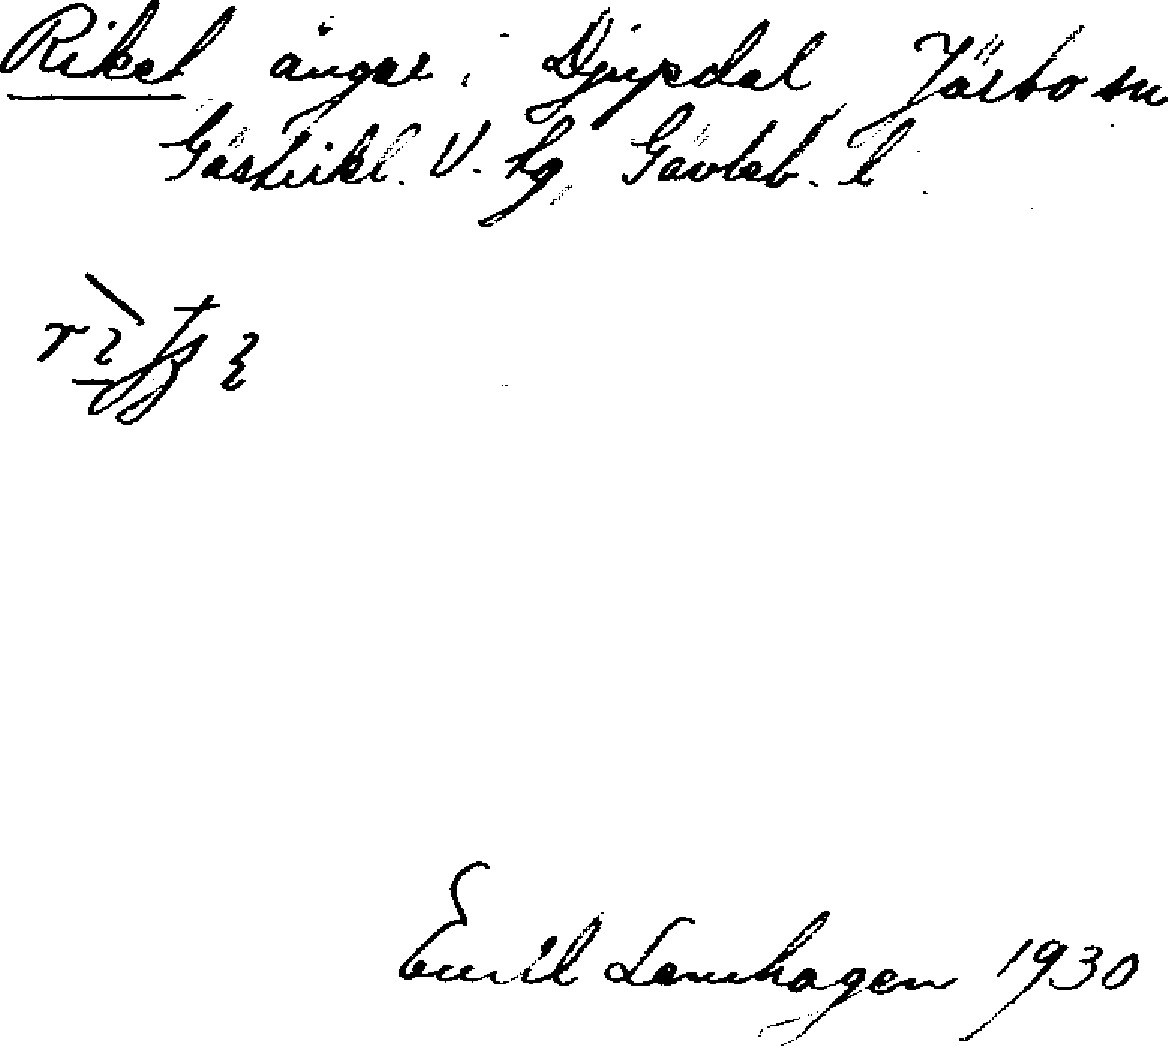 Riket ängar i Djupdal Järbo sn
Gästrikl. V. hg Gävleb. l
Emil Lenhagen 1930